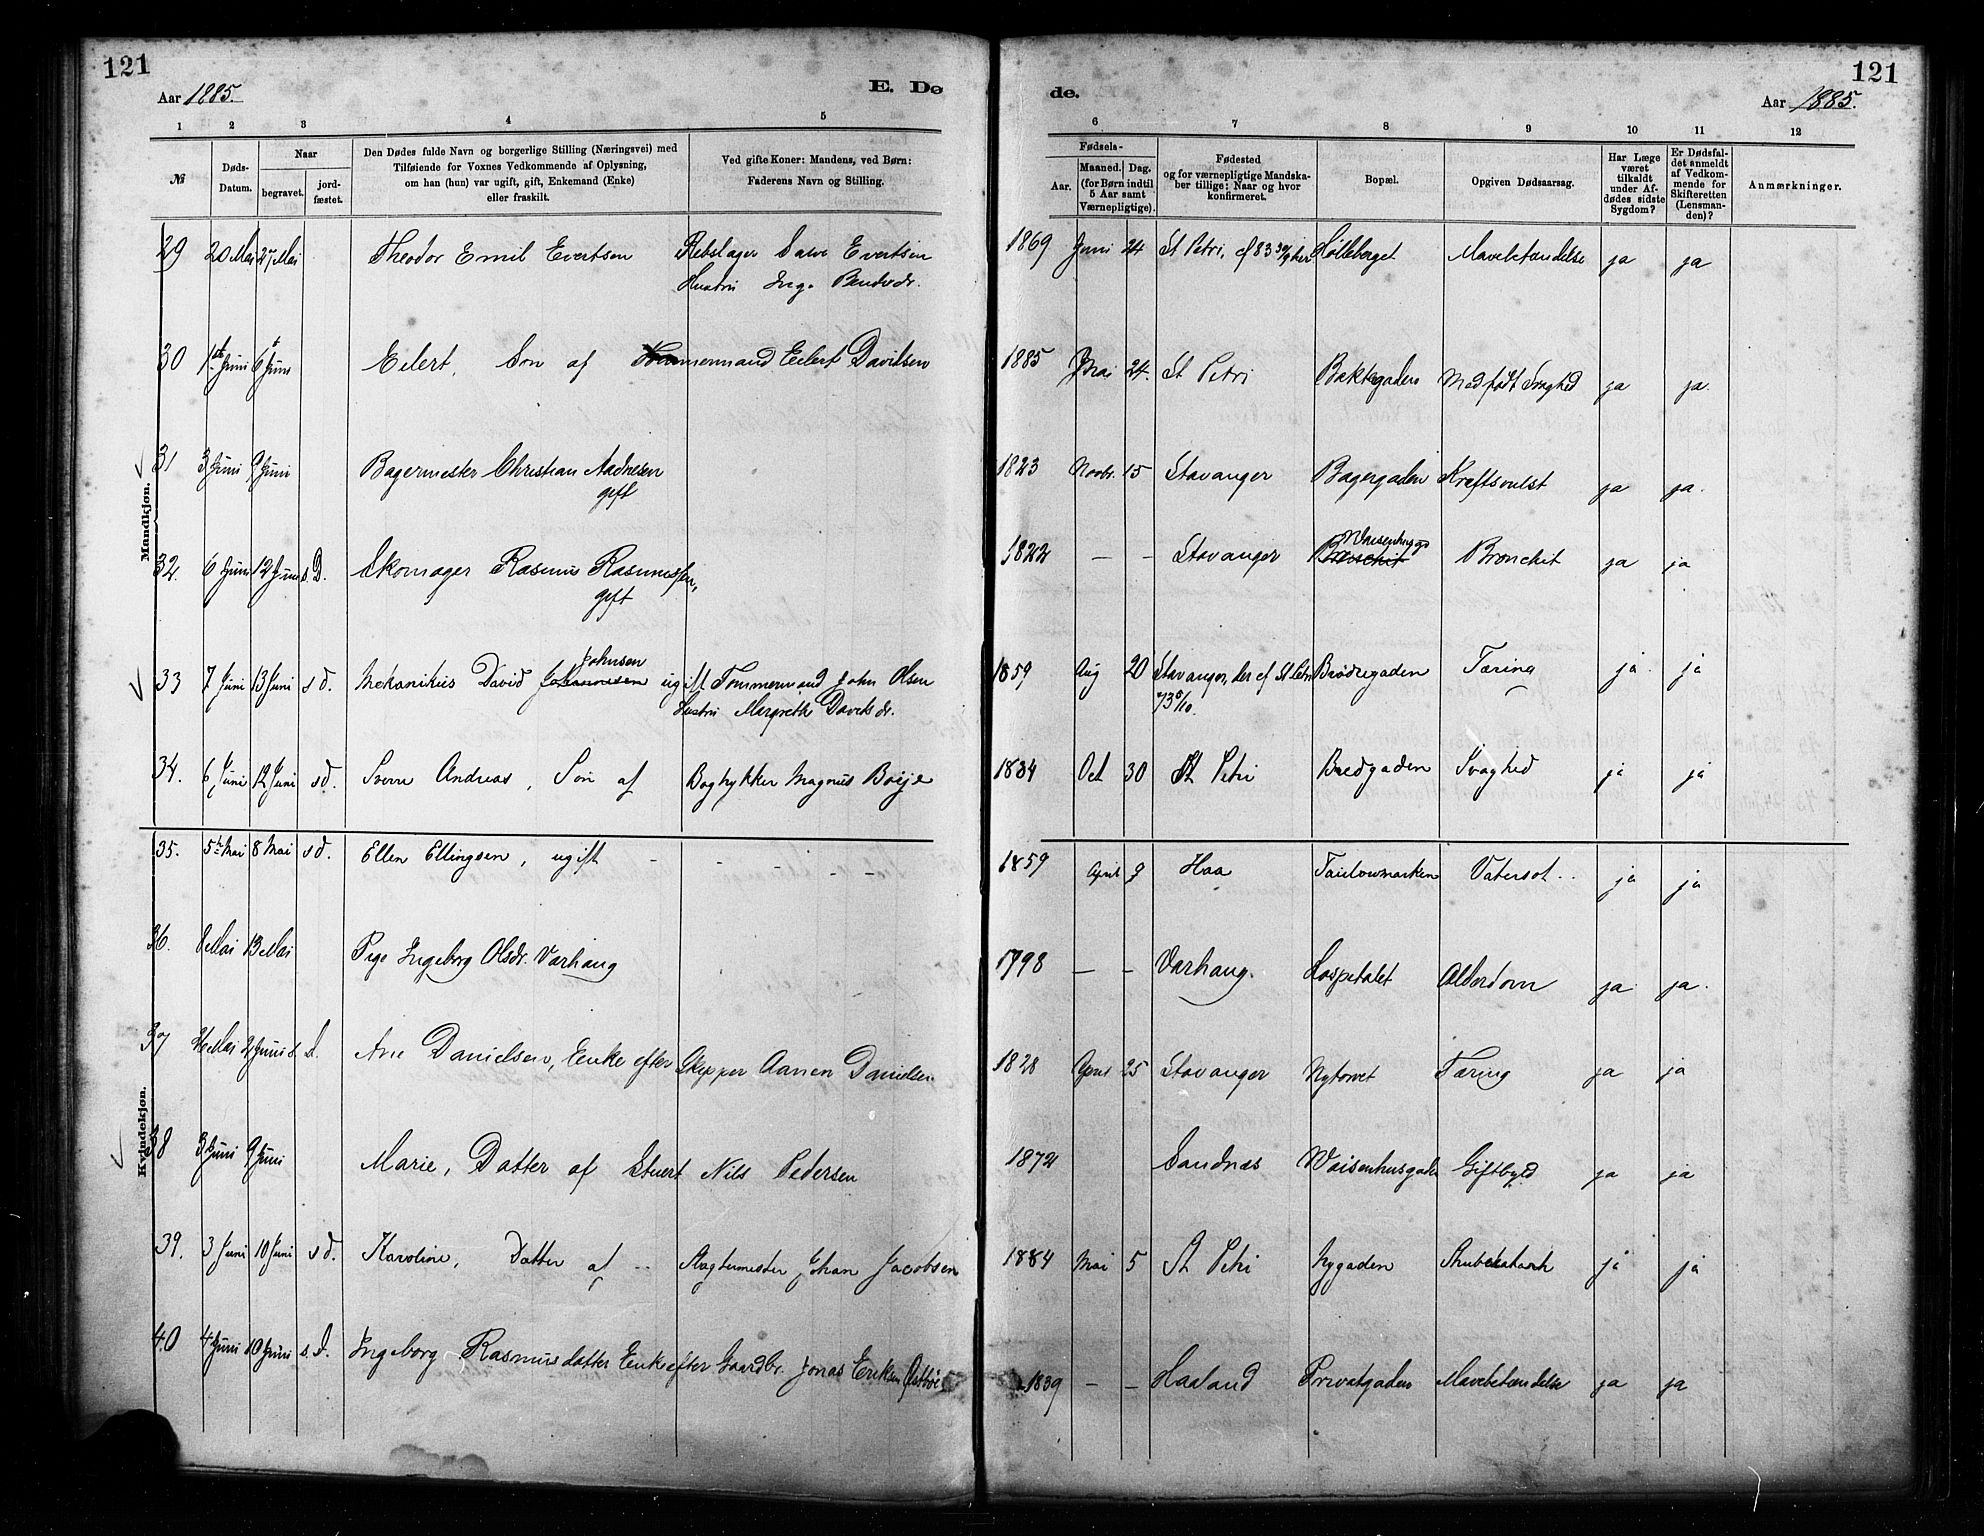 121
Aar 1885.
E. Dø
1 2 3 4 5
№
Døds-Datum.
Naar
begravet. jord-fæstet.
Den Dødes fulde Navn og borgerlige Stilling (Næringsvei) med
Tilføiende for Voxnes Vedkommende af Oplysning,
om han (hun) var ugift, gift, Enkemand (Enke)
eller fraskilt.
Ved gifte Koner: Mandens, ved Børn:
Faderens Navn og Stilling.
Mandkjøn.
29 20 Mai 27 Mai Theodor Emil Evertsen Rebslager Evertsen
Hustru
30 1 Juni 6 Juni Eilert, Søn af Eilert Davidsen
31 3 Juni 9 Juni Bagermester Christian Aadnesen
gift
32. 6 Juni 12 Juni s. D. Skomager Rasmus Rasmussen,
gift
Johnsen
33 7 Juni 13 Juni s d. Mekanikus David Johannesen ugift Tømmermand John Olsen
Hustru Margrethe Davidsdr.
34. 6 Juni 12 Juni s d. Andreas, Søn af Bogtrykker Magnus
Kvindekjøn.
35. 5 Mai 8 Mai s d. Ellen Ellingsen, ugift
36. 8 Mai 13 Mai Pige Ingeborg Olsdr. Varhaug
37 26 Mai 2 Juni s. d. Ane Danielsen, Enke efter Skipper Aanen Danielsen
38 3 Juni 9 Juni Marie, Datter af Stuert Nils Pedersen
39. 3 Juni 10 Juni s d. Karoline, Datter af Slagtermester Johan Jacobsen
40 4 Juni 10 Juni s. d. Ingeborg Rasmusdatter Enke efter Gaardbr. Jonas Eriksen
de.
121
Aar 1885.
6 7 8 9 10 11 12
Fødsels-
Aar. Maaned. Dag.
(for Børn indtil
5 Aar samt
Værnepligtige).
Fødested
og for værnepligtige Mandska-
ber tillige: Naar og hvor
konfirmeret.
Bopæl.
Opgiven Dødsaarsag.
Har Læge
været
tilkaldt
under Af-
dødes sidste
Sygdom?
Er Dødsfal-
det anmeldt
af Vedkom-
mende for
Skifteretten
(Lensman-
den)?
Anmærkninger.
1869 Juni 24 St Petri, Mavebetændelse ja ja
1885 Mai 24. St Petri Bakkegaden Medfødt Svaghed ja ja.
1823 Novbr. 15 Stavanger Bagergaden Kræftsvulst ja ja.
1822 — — Stavanger Bronchit Bronchit ja ja
1859 Aug 20 Stavanger, St Petri Brødregaden Tæring ja ja
73 5/10.
1884 Oct 30 St Petri Bredgaden Svaghed ja ja
1859 April 9 Haa Vatersot ja ja
1798 — — Varhaug. Hospitalet Alderdom ja ja.
1828 April 25 Stavanger Nytorvet Tæring ja ja
1872 Sandnæs Waisenhusgaden Giftbyld ja ja
1884 Mai 5 St Petri Nygaden Strubekatarrh ja ja
1839 — — Haaland Privatgaden Mavebetændelse ja ja